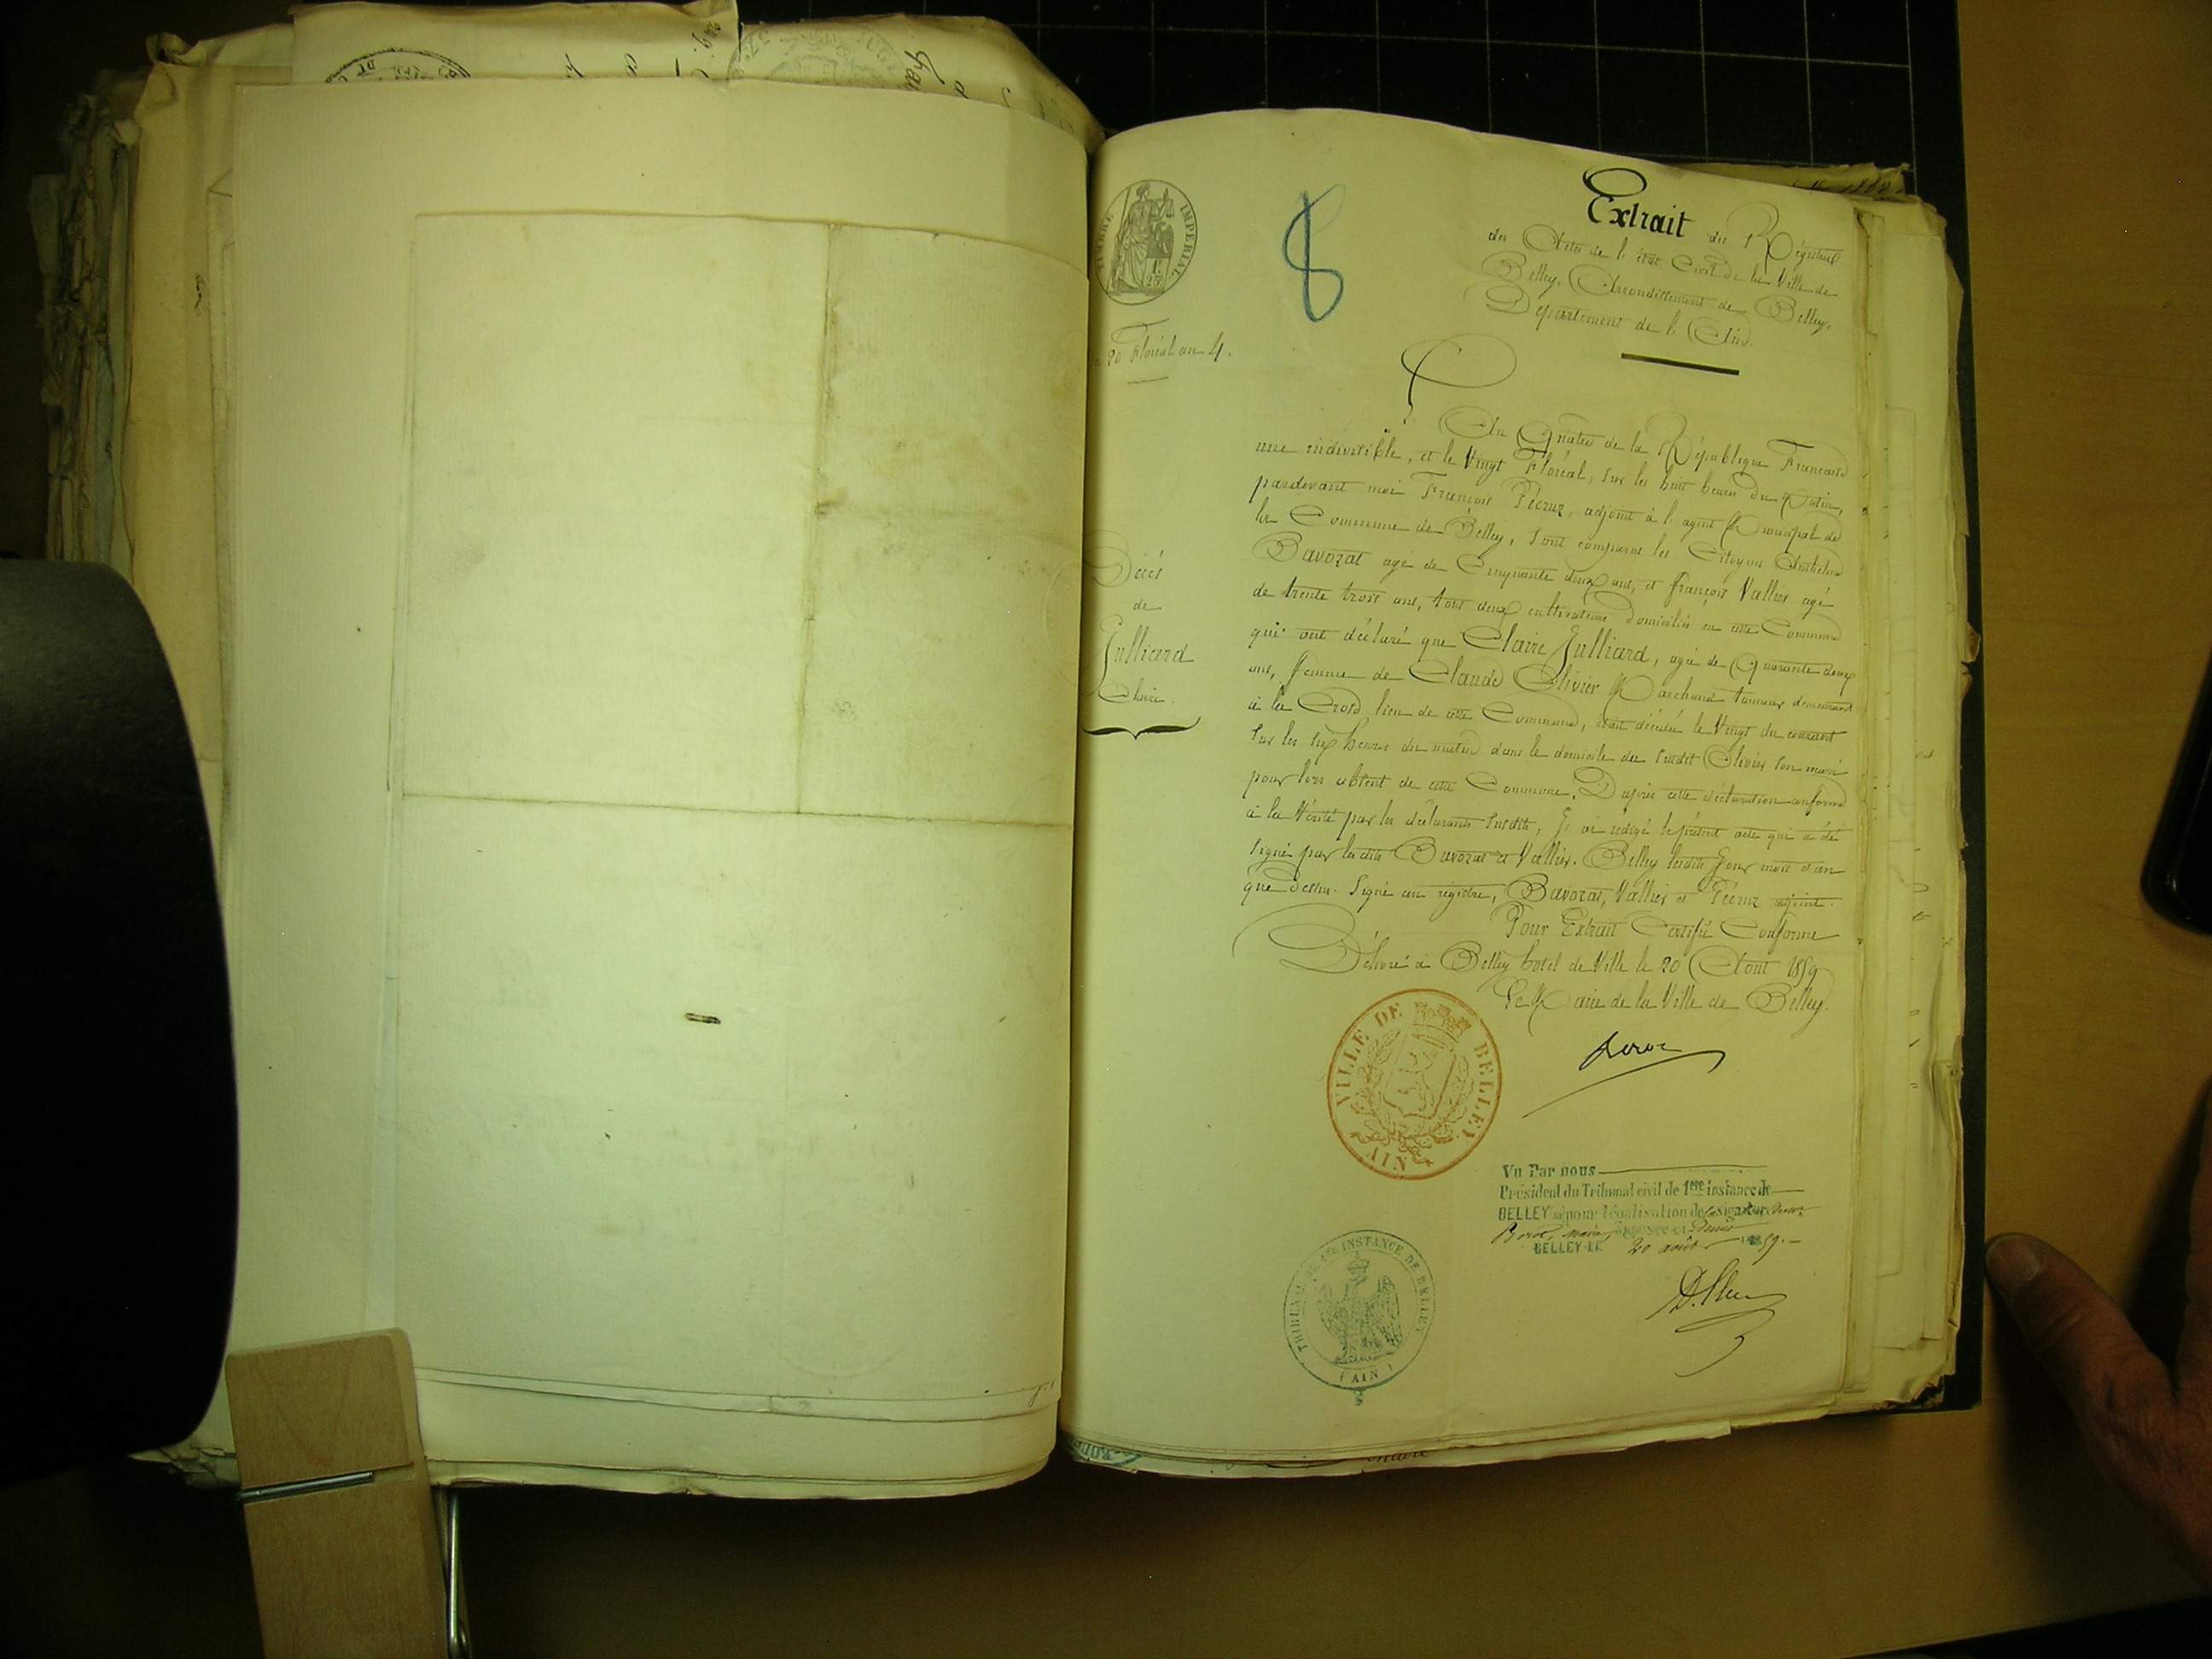 TIMBRE IMPERIAL
1f 25c
8
Extrait des Régistres
des Actes de l'état Civil de la Ville de
Belley, Arrondissement de Belley,
Département de l'Ain.
20 Floréal an 4.
An Quatre de la République Francaise
une indivisible, et le Vingt Floréal, sur les huit heures du Matin,
pardevant moi François Pécruz, adjoint à l'agent Municipal de
la Commune de Belley, sont comparus les Citoyens Anthelme
Bavozat agé de Cinquante deux ans, et françois Vallier agé
de trente trois ans, tous deux cultivateurs domiciliés en cette Commune
qui ont déclaré que Claire Julliard, agée de Quarante deux
ans, femme de Claude Olivier Marchand tanneur demeurant
à la Croze lieu de cette Commune, était décédée le Vingt du courant
sur les six heures du matin dans le domicile du susdit Olivier son mari
pour lors absent de cette Commune. D'après cette déclaration conforme
à la Vérité par les déclarants susdits, J'ai rédigé le présent acte qui a été
signé par les dits Bavozat et Vallier. Belley lesdits Jour mois et an
que dessus. Signé au régistre, Bavozat, Vallier et Pécruz adjoint.
Décès
de
Julliard
Claire.
Pour Extrait Certifié Conforme
Délivré à Belley hotel de Ville le 20 Aout 1859
Le Maire de la Ville de Belley.
VILLE DE BELLEY
AIN
Vu Par nous
Président du Tribunal civil de 1ère instance de
BELLEY pour légalisation de la signature de Mr
maire apposée ci-dessus
BELLEY LE 20 août 1859.
TRIBUNAL DE 1RE INSTANCE DE BELLEY
(AIN)